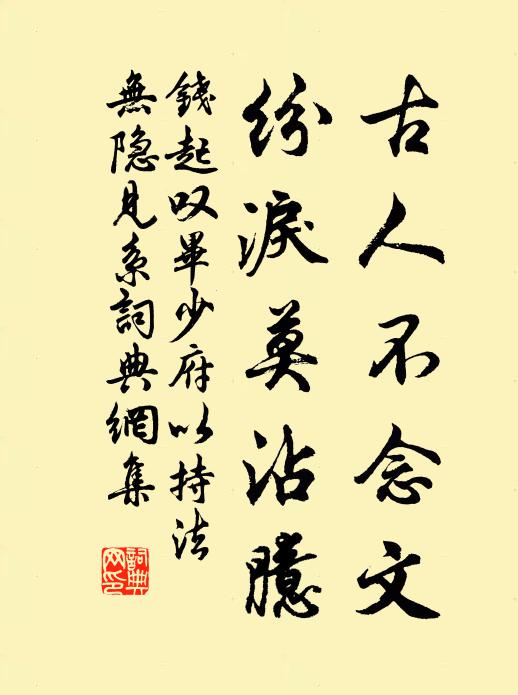 古人不念文
纷淚莫沾臆
錢起叹畢少府以持法
無隐見系詞典網集
詞典网印